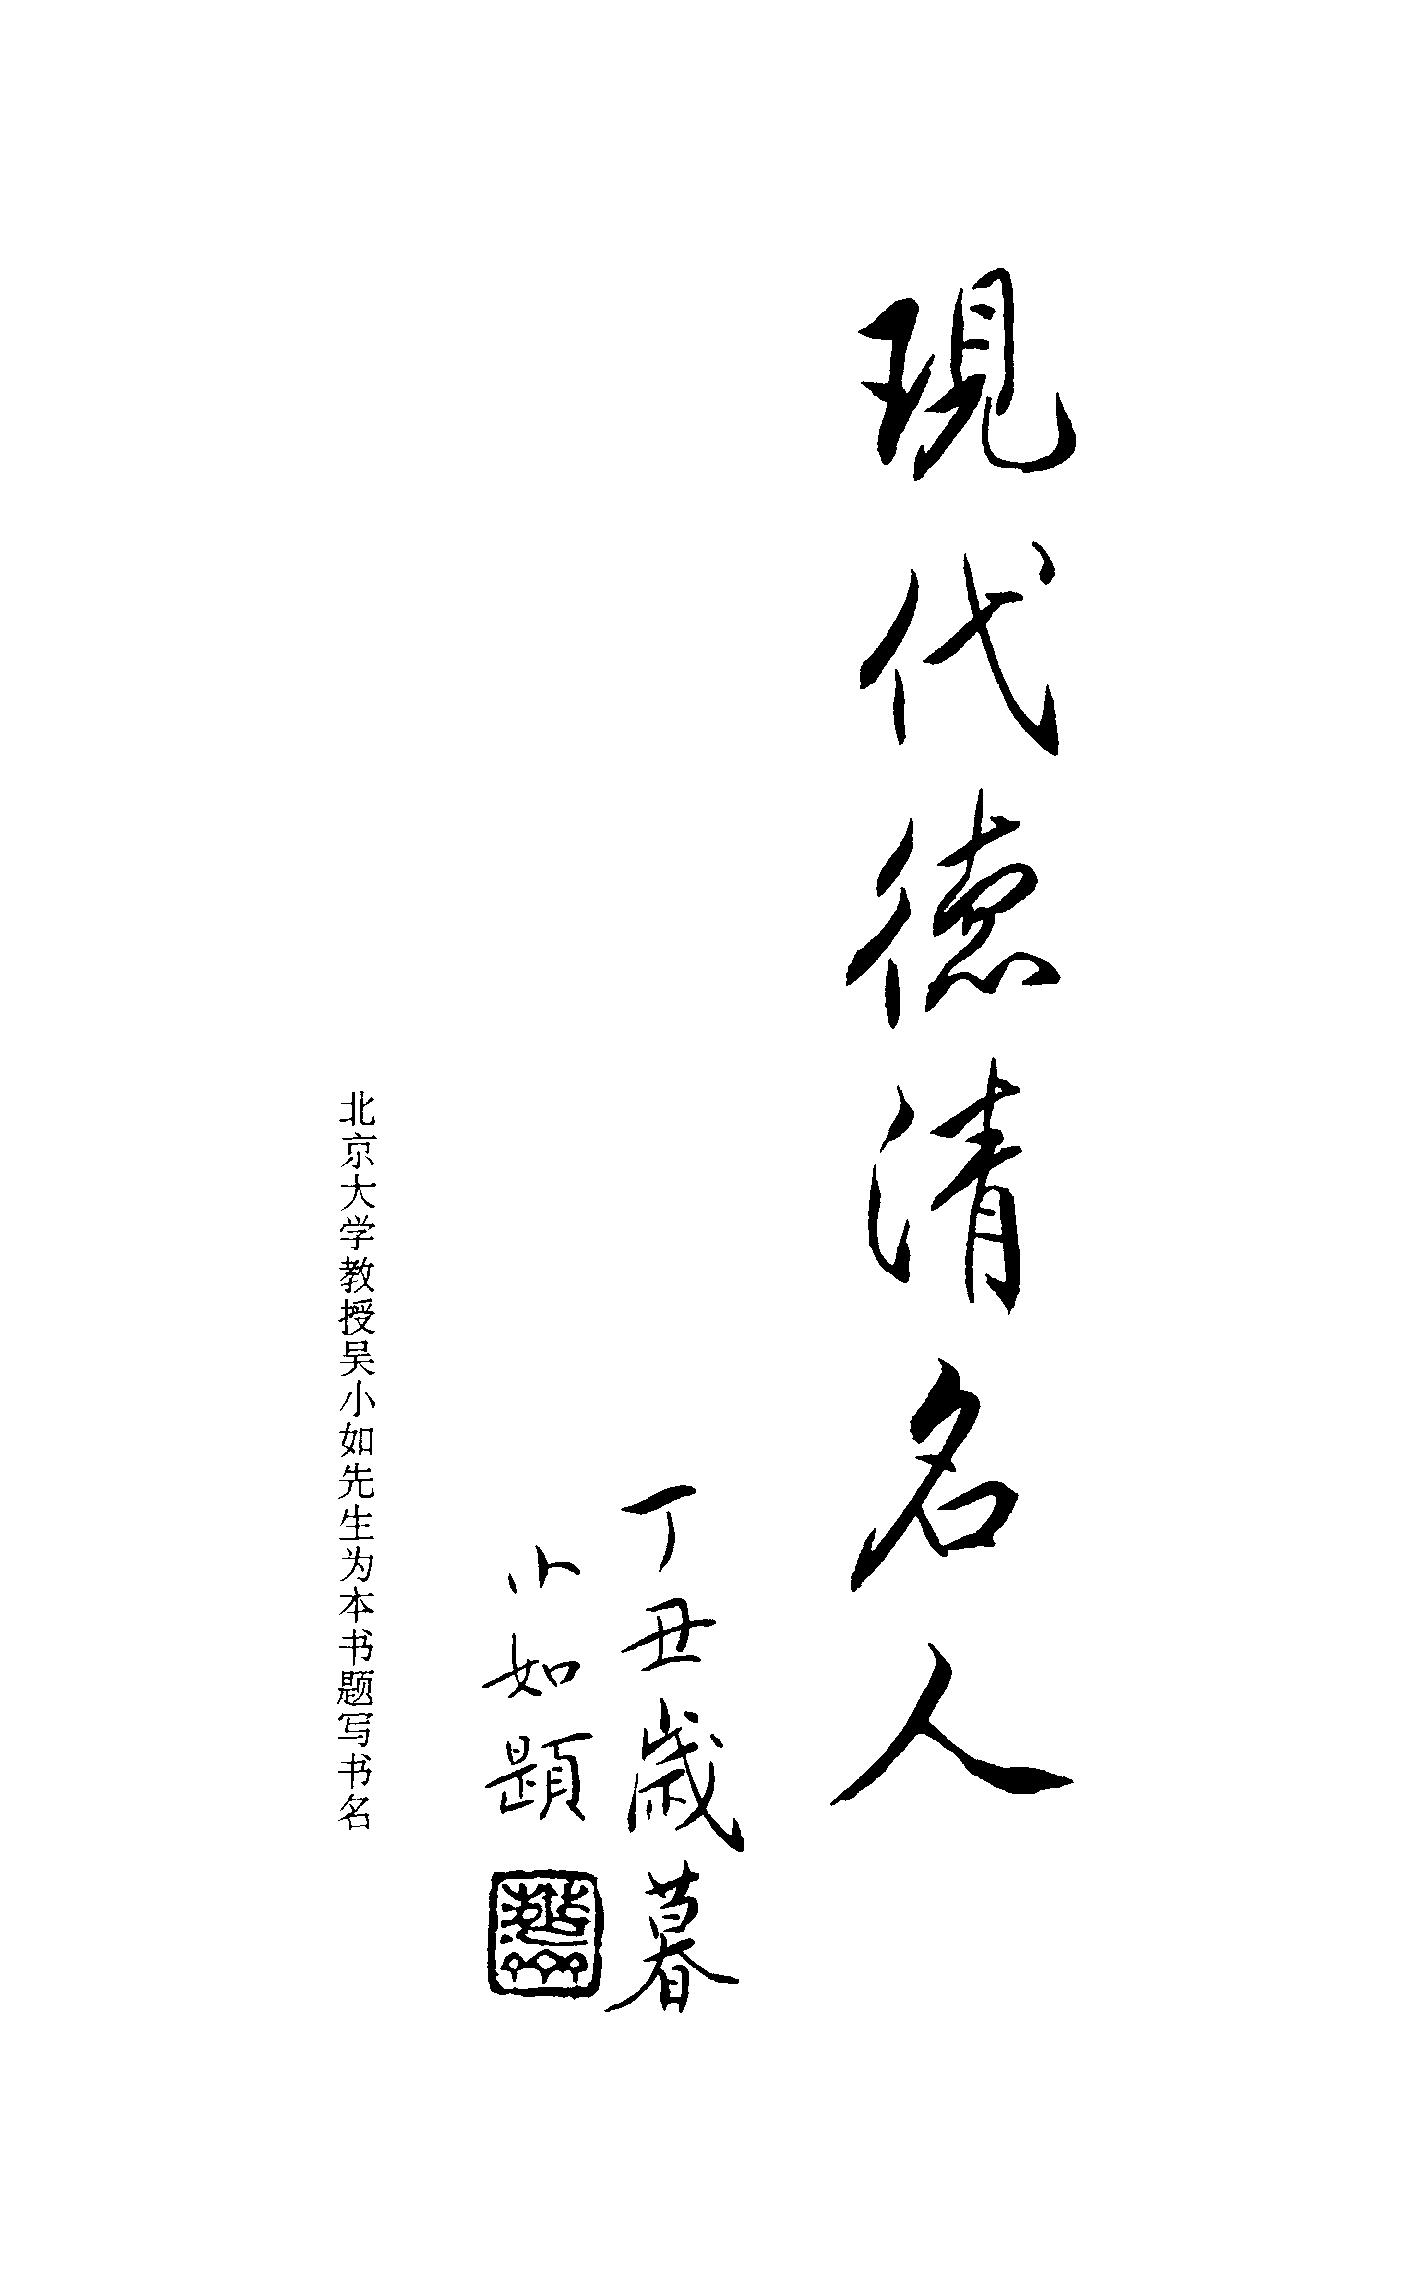 現代德清名人
丁丑歲暮
小如題
北京大学教授吴小如先生为本书题写书名